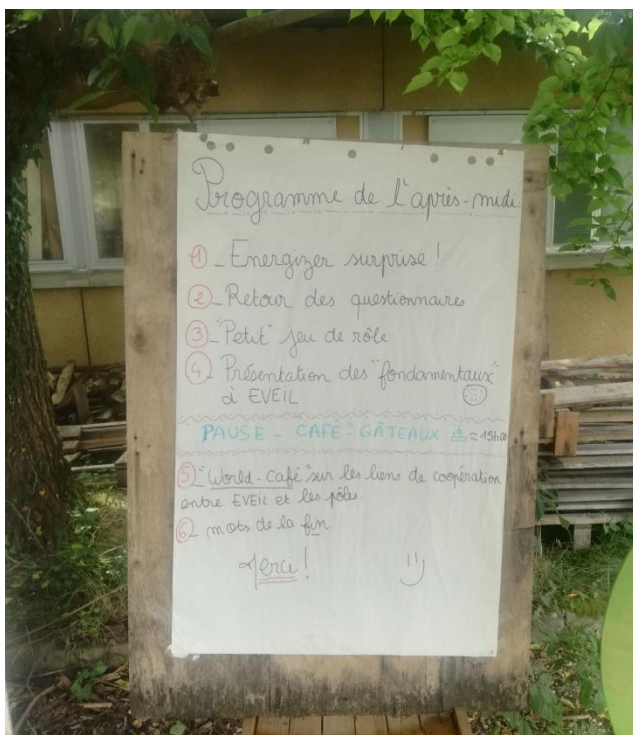 Programme de l'après-midi
1 - Energizer surprise !
2 - Retour des questionnaires
3 - "Petit" jeu de rôle
4 - Présentation des "fondamentaux"
à EVEIL
PAUSE - CAFÉ - GÂTEAUX ≈ 15h00
5 - "World - Café" sur les liens de coopération
entre EVEIL et les pôles.
6 - mots de la fin
Merci !